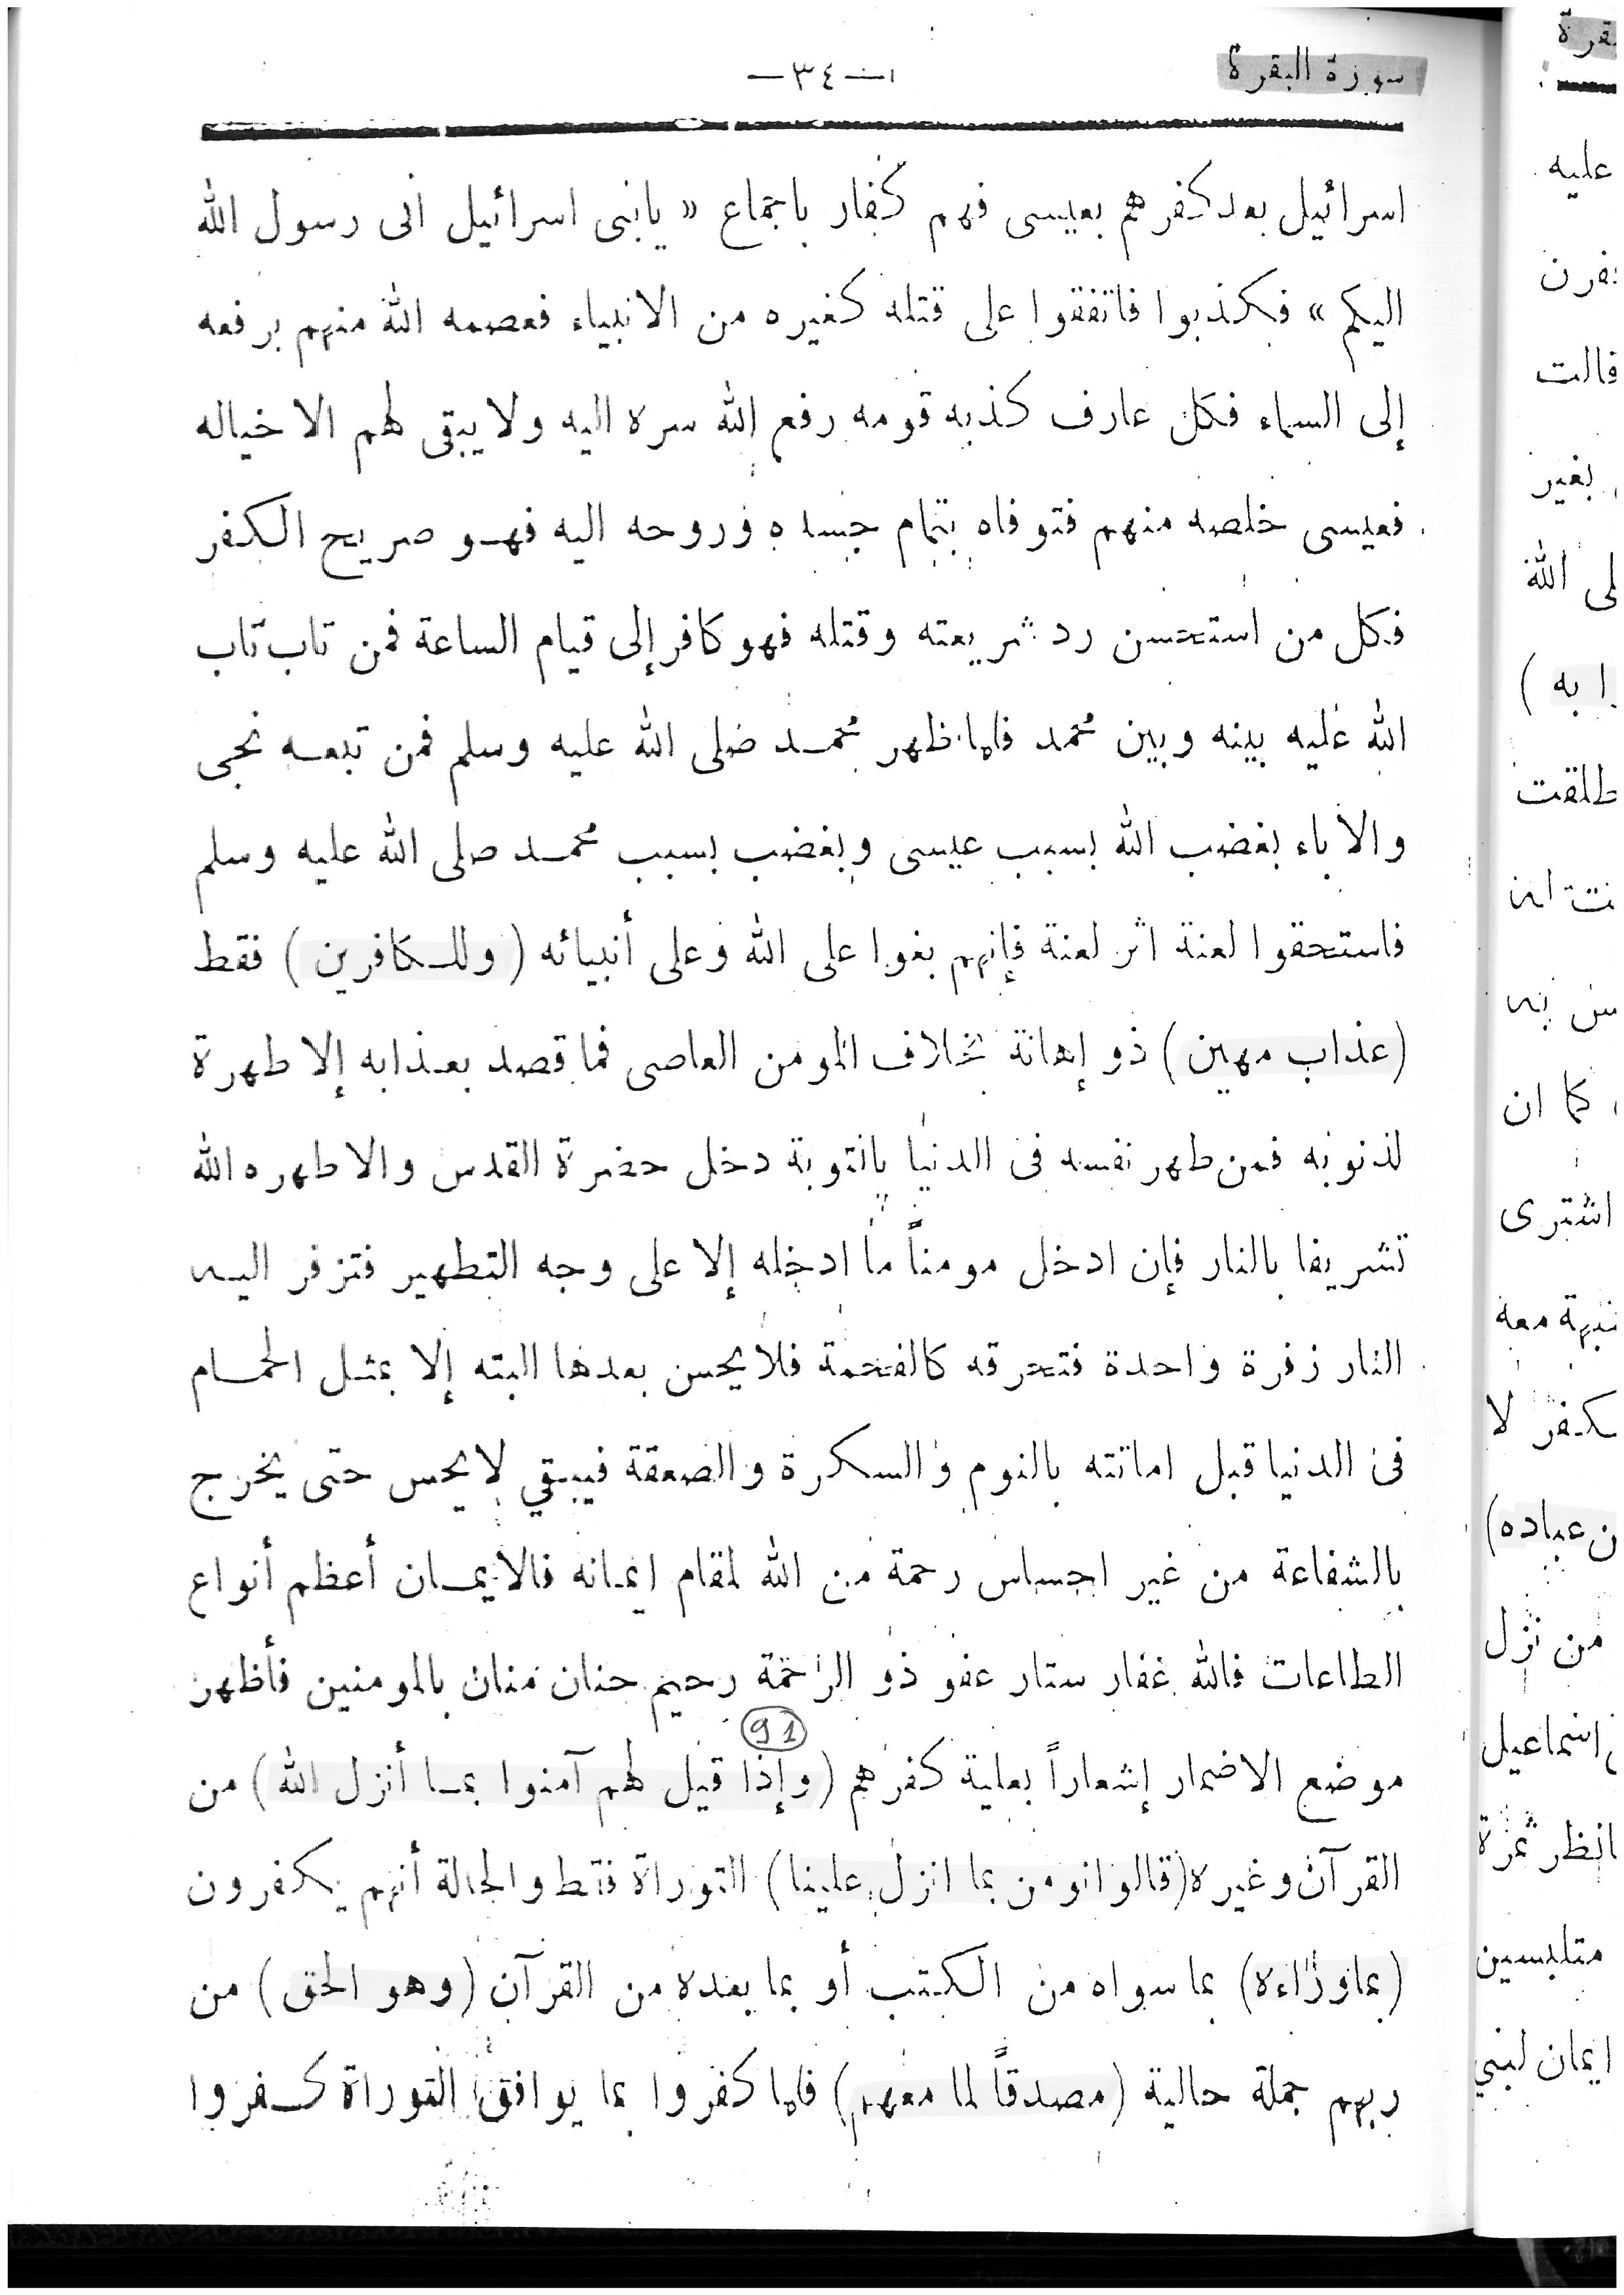 سورة البقرة
— ٣٤ —
اسرائيل بعد كفرهم بعيسى فهم كفار باجماع « يابنى اسرائيل انى رسول الله
اليكم » فكذبوا فاتفقوا على قتله كغيره من الانبياء فعصمه الله منهم برفعه
إلى السماء فكل عارف كذبه قومه رفع الله سره اليه ولا يبقى لهم الا خياله
فعيسى خلصه منهم فتوفاه بتمام جسده وروحه اليه فهو صريح الكفر
فكل من استحسن رد شريعته وقتله فهو كافر إلى قيام الساعة فمن تاب تاب
الله عليه بينه وبين محمد فلما ظهر محمد صلى الله عليه وسلم فمن تبعه نجى
والا باء بغضب الله بسبب عيسى وبغضب بسبب محمد صلى الله عليه وسلم
فاستحقوا لعنة اثر لعنة فإنهم بغوا على الله وعلى أنبيائه ( وللكافرين ) فقط
(عذاب مهين) ذو إهانة بخلاف المومن العاصى فما قصد بعذابه إلا طهرة
لذنوبه فمن طهر نفسه فى الدنيا بالتوبة دخل حضرة القدس والا طهره الله
تشريفا بالنار فإن ادخل مومناً ما ادخله إلا على وجه التطهير فتزفر اليه
النار زفرة واحدة فتحرقه كالفحمة فلا يحس بعدها البته إلا بمثل الحمام
فى الدنيا قبل اماتته بالنوم والسكرة والصعقة فيبقي لا يحس حتى يخرج
بالشفاعة من غير احساس رحمة من الله لمقام ايمانه فالايمان أعظم أنواع
الطاعات فالله غفار ستار عفو ذو الرحمة رحيم حنان منان بالمومنين فأظهر
91
موضع الاضمار إشعاراً بعلية كفرهم (وإذا قيل لهم آمنوا بما أنزل الله) من
القرآن وغيره (قالوا نومن بما انزل علينا) التوراة فقط والحالة أنهم يكفرون
(بما وراءه) بما سواه من الكتب أو بما بعده من القرآن (وهو الحق) من
ربهم جملة حالية (مصدقاً لما معهم) فلما كفروا بما يوافق التوراة كفروا
عليه
قالت
بغير
ا به )
طلقت
كما ان
اشترى
معه
لا
ن عباده)
من نزل
اسماعيل
انظر ثمرة
متلبسين
ايمان لبني